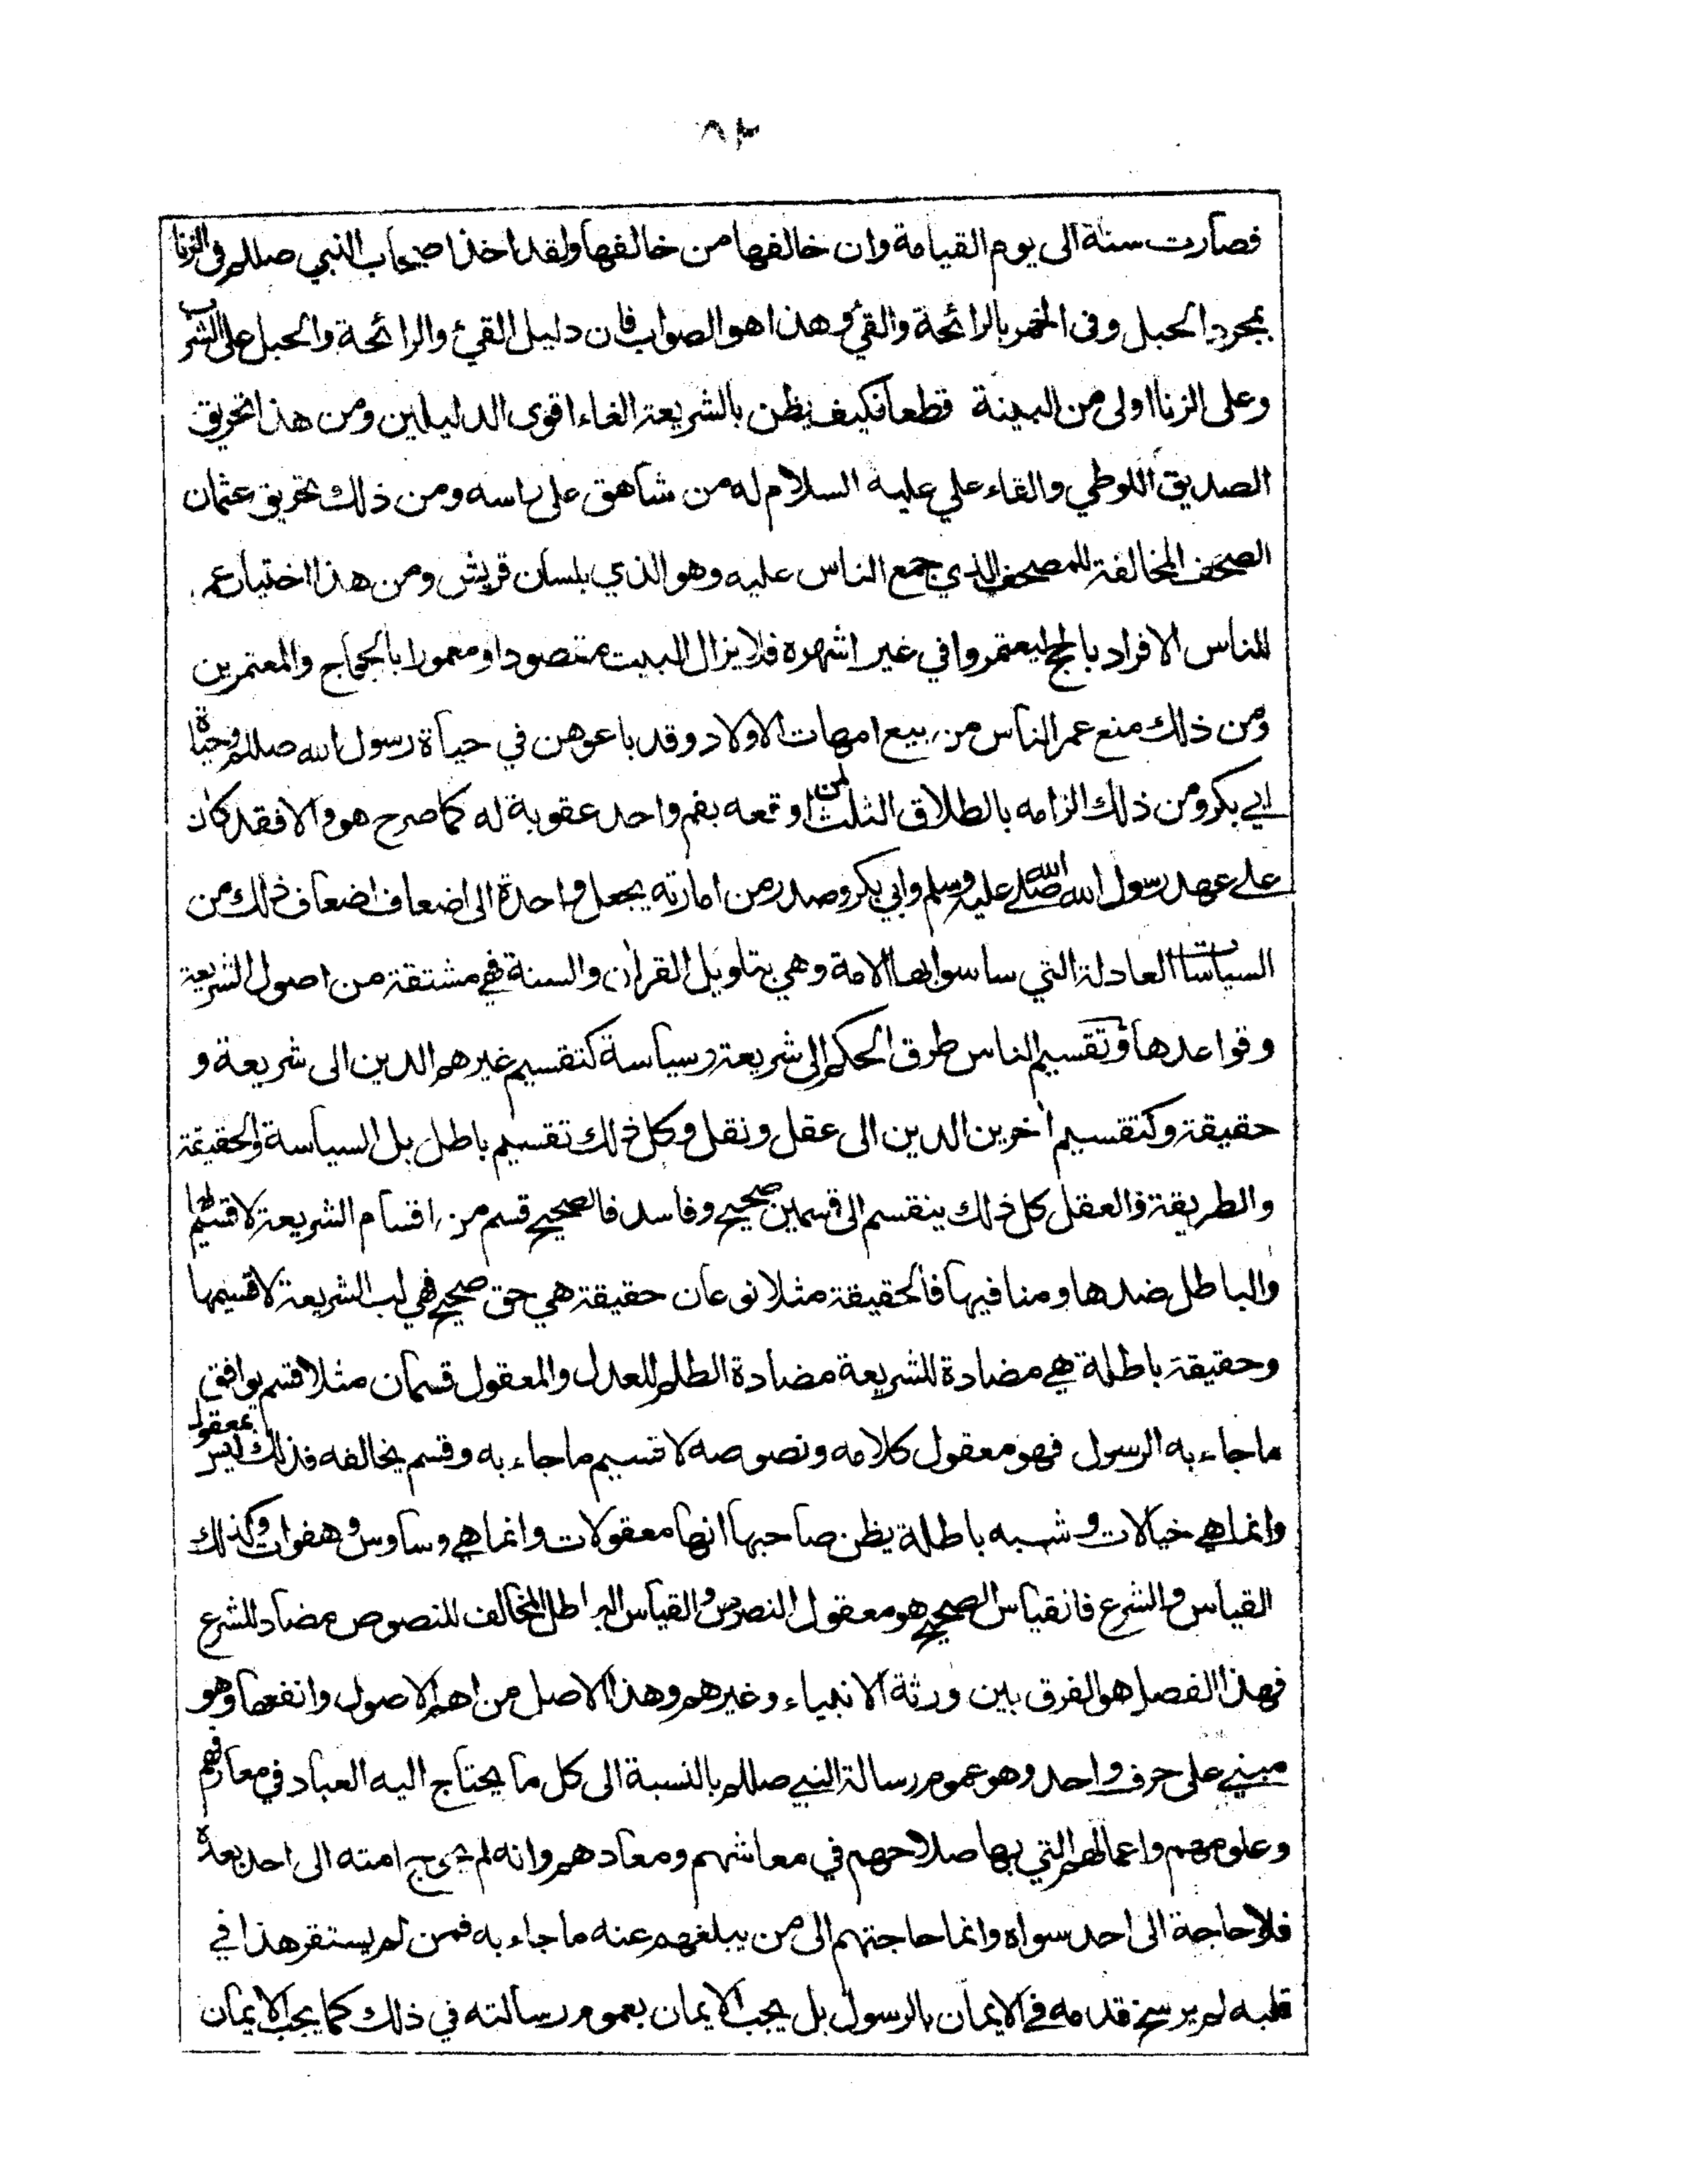 ٨٣
فصارت سنة الى يوم القيامة وان خالفها من خالفها ولقد اخذ اصحاب النبي صللم فى الزنا
بمجرد الحبل وفى الخمر بالرائحة والقئ وهذا هو الصواب فان دليل القئ والرائحة والحبل على الشرب
وعلى الزنا اولى من البينة قطعا فكيف يظن بالشريعة الغاء اقوى الدليلين ومن هذا تحريق
الصديق اللوطي والقاء علي عليه السلام له من شاهق على راسه ومن ذلك تحريق عثمان
الصحف المخالفة للمصحف الذي جمع الناس عليه وهو الذي بلسان قريش ومن هذا اختيار عمر
للناس الافراد بالحج ليعتمروا في غير اشهره فلا يزال البيت مقصودا ومعمورا بالحجاج والمعتمرين
ومن ذلك منع عمر الناس من بيع امهات الاولاد وقد باعوهن في حياة رسول الله صللم وحياة
ابي بكر ومن ذلك الزامه بالطلاق الثلث لمن اوقعه بفم واحد عقوبة له كما صرح هو والا فقد كان
على عهد رسول الله صلى الله عليه وسلم وابي بكر وصدر من امارته يجعل واحدة الى اضعاف اضعاف ذلك من
السياسات العادلة التي ساسوا بها الامة وهي بتاويل القرآن والسنة فهي مشتقة من اصول الشريعة
وقواعدها وتقسيم الناس طرق الحكم الى شريعة وسياسة كتقسيم غيرهم الدين الى شريعة و
حقيقة وكتقسيم آخرين الدين الى عقل ونقل وكل ذلك تقسيم باطل بل السياسة والحقيقة
والطريقة والعقل كل ذلك ينقسم الى قسمين صحيح وفاسد فالصحيح قسم من اقسام الشريعة لا قسيم لها
والباطل ضدها ومنافيها فالحقيقة مثلا نوعان حقيقة هي حق صحيح فهي لب الشريعة لا قسيمها
وحقيقة باطلة هي مضادة للشريعة مضادة الظلم للعدل والمعقول قسمان مثلا قسم يوافق
ما جاء به الرسول فهو معقول كلامه ونصوصه لا قسيم ما جاء به وقسم يخالفه فذلك ليس بمعقول
وانما هي خيالات وشبه باطلة يظن صاحبها انها معقولات وانما هي وساوس وهفوات وكذلك
القياس والشرع فالقياس الصحيح هو معقول النصوص والقياس الباطل المخالف للنصوص مضاد للشرع
فهذا الفصل هو الفرق بين ورثة الانبياء وغيرهم وهذا الاصل من اهم الاصول وانفعها وهو
مبني على حرف واحد وهو عموم رسالة النبي صللم بالنسبة الى كل ما يحتاج اليه العباد في معارفهم
وعلومهم واعمالهم التي بها صلاحهم في معاشهم ومعادهم وانه لم يحوج امته الى احد بعده
فلا حاجة الى احد سواه وانما حاجتهم الى من يبلغهم عنه ما جاء به فمن لم يستقر هذا في
قلبه لم يرسخ قدمه في الايمان بالرسول بل يجب الايمان بعموم رسالته في ذلك كما يجب الايمان